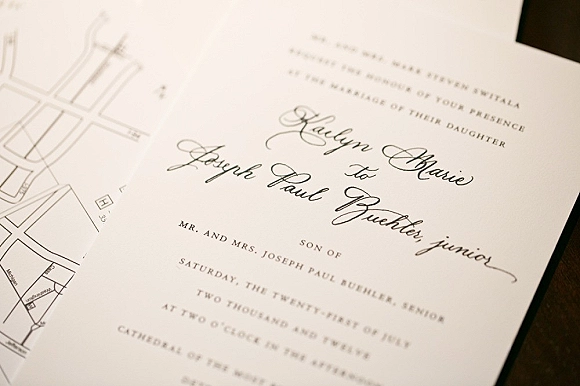 MR. AND MRS. MARK STEVEN SWITALA
REQUEST THE HONOUR OF YOUR PRESENCE
AT THE MARRIAGE OF THEIR DAUGHTER
Kailyn Marie
to
Joseph Paul Buehler, junior
SON OF
MR. AND MRS. JOSEPH PAUL BUEHLER, SENIOR
SATURDAY, THE TWENTY-FIRST OF JULY
TWO THOUSAND AND TWELVE
AT TWO O'CLOCK IN THE AFTERNOON
CATHEDRAL OF THE MOST
Michigan
Jefferson
H